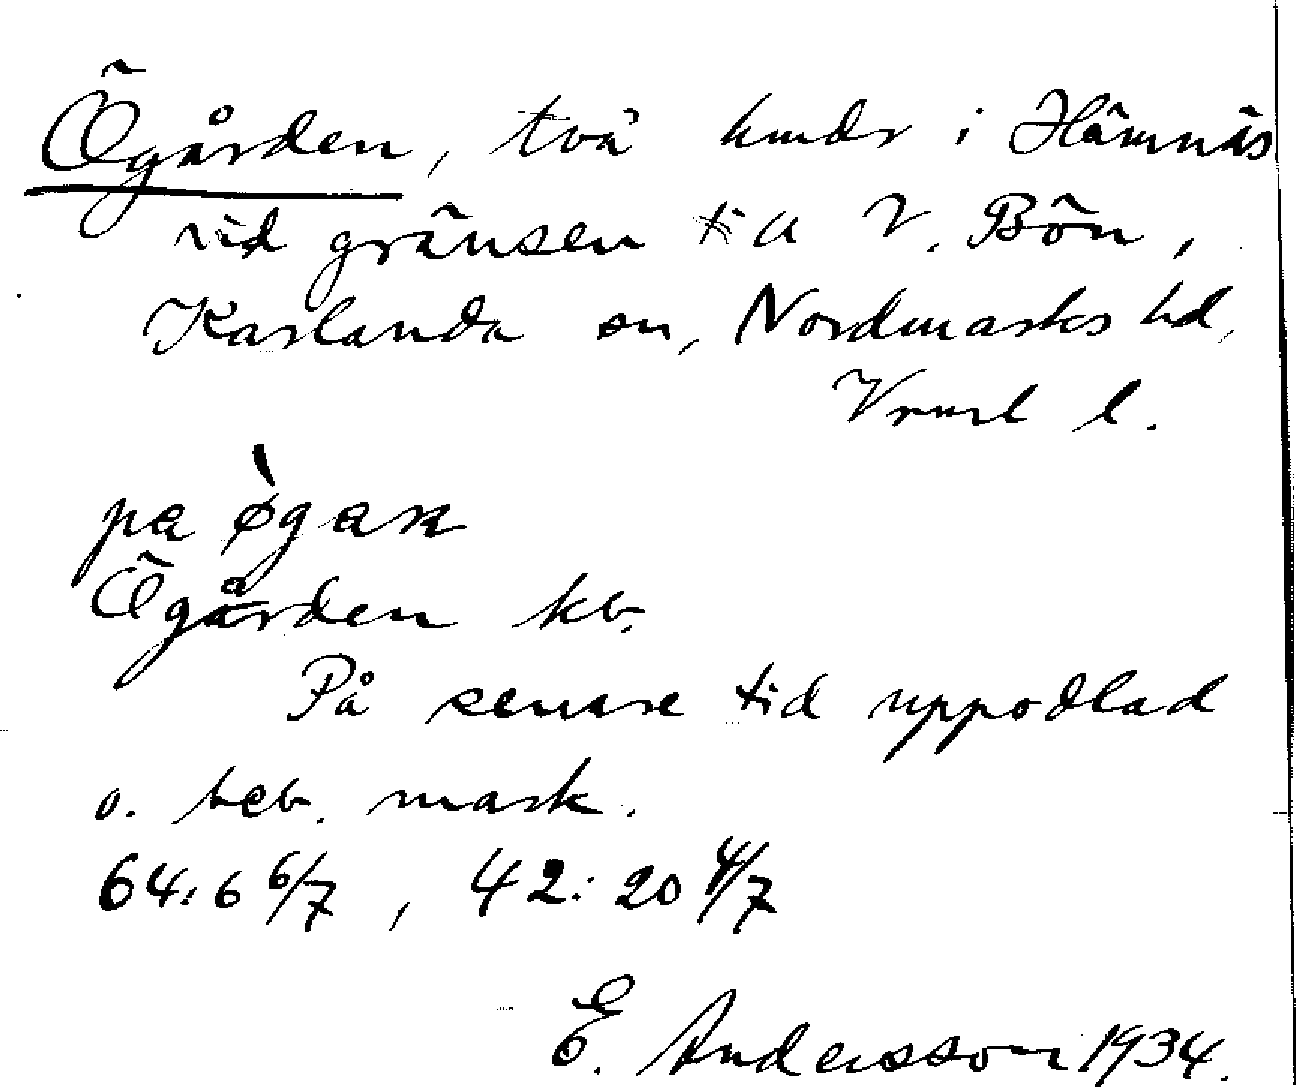 Ögården, två hmdr i Hämnäs
vid gränsen till V. Bön,
Karlanda sn, Nordmarks hd,
Vrml l.
pa øgaɳ
Ögården kb.
På senare tid uppodlad
o. beb. mark.
64:6 6/7, 42:20 4/7
E. Andersson 1934.